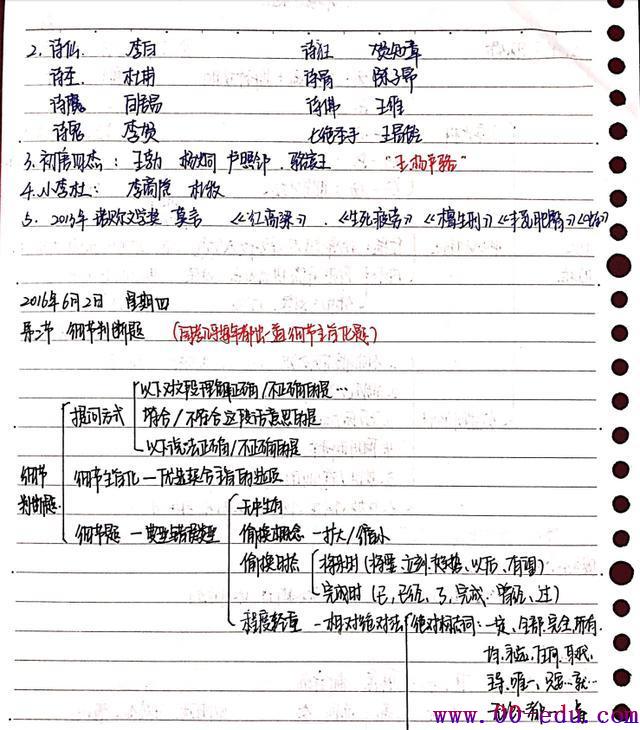 2. 诗仙 李白 诗狂 贺知章
诗圣 杜甫 诗骨 陈子昂
诗魔 白居易 诗佛 王维
诗鬼 李贺 七绝圣手 王昌龄
3. 初唐四杰: 王勃 杨炯 卢照邻. 骆宾王 "王杨卢骆"
4. 小李杜: 李商隐 杜牧
5. 诺贝尔文学奖 莫言 《红高粱》. 《生死疲劳》《檀香刑》《丰乳肥臀》《蛙》
2016年6月2日 星期四
第二节 细节判断题 (每年都出一道细节主旨化题)
以下对文段理解正确/不正确的是…
提问方式 符合/不符合这段话意思的是
以下说法正确/不正确的是
细节判断题 细节主旨化—优选契合主旨的选项
无中生有
细节题—典型错误类型 偷换概念—扩大/缩小
偷换时态 将来时(将要.立刻.趋势.以后.有望)
完成时(已,已经,了,完成.曾经,过)
程度轻重—相对绝对法 绝对标志词:一定、全部.完全.所有.
均.永远.任何.
唯一、只要…就…
都一点
www.00-edu.com